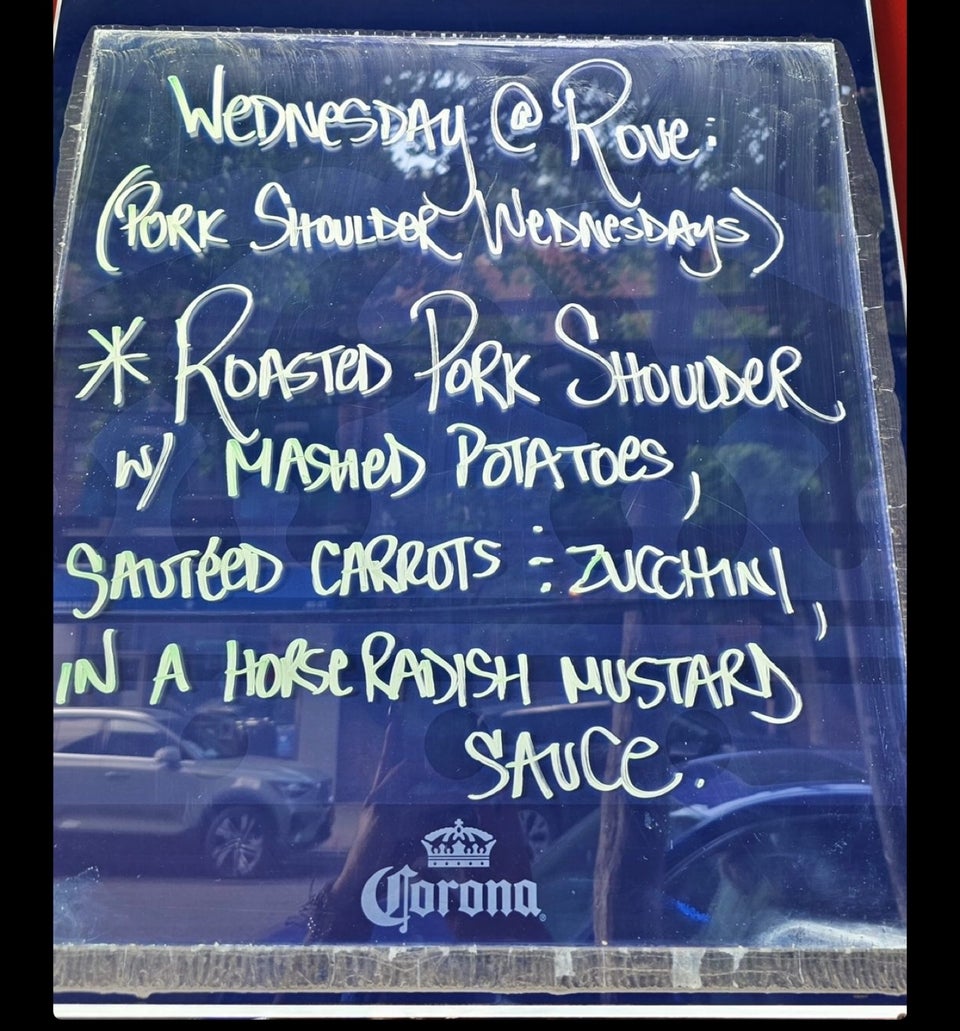 WEDNESDAY @ ROVE:
(PORK SHOULDER WEDNESDAYS)
* ROASTED PORK SHOULDER
W/ MASHED POTATOES,
SAUTÉED CARROTS ÷ ZUCCHINI,
IN A HORSERADISH MUSTARD
SAUCE.
Corona